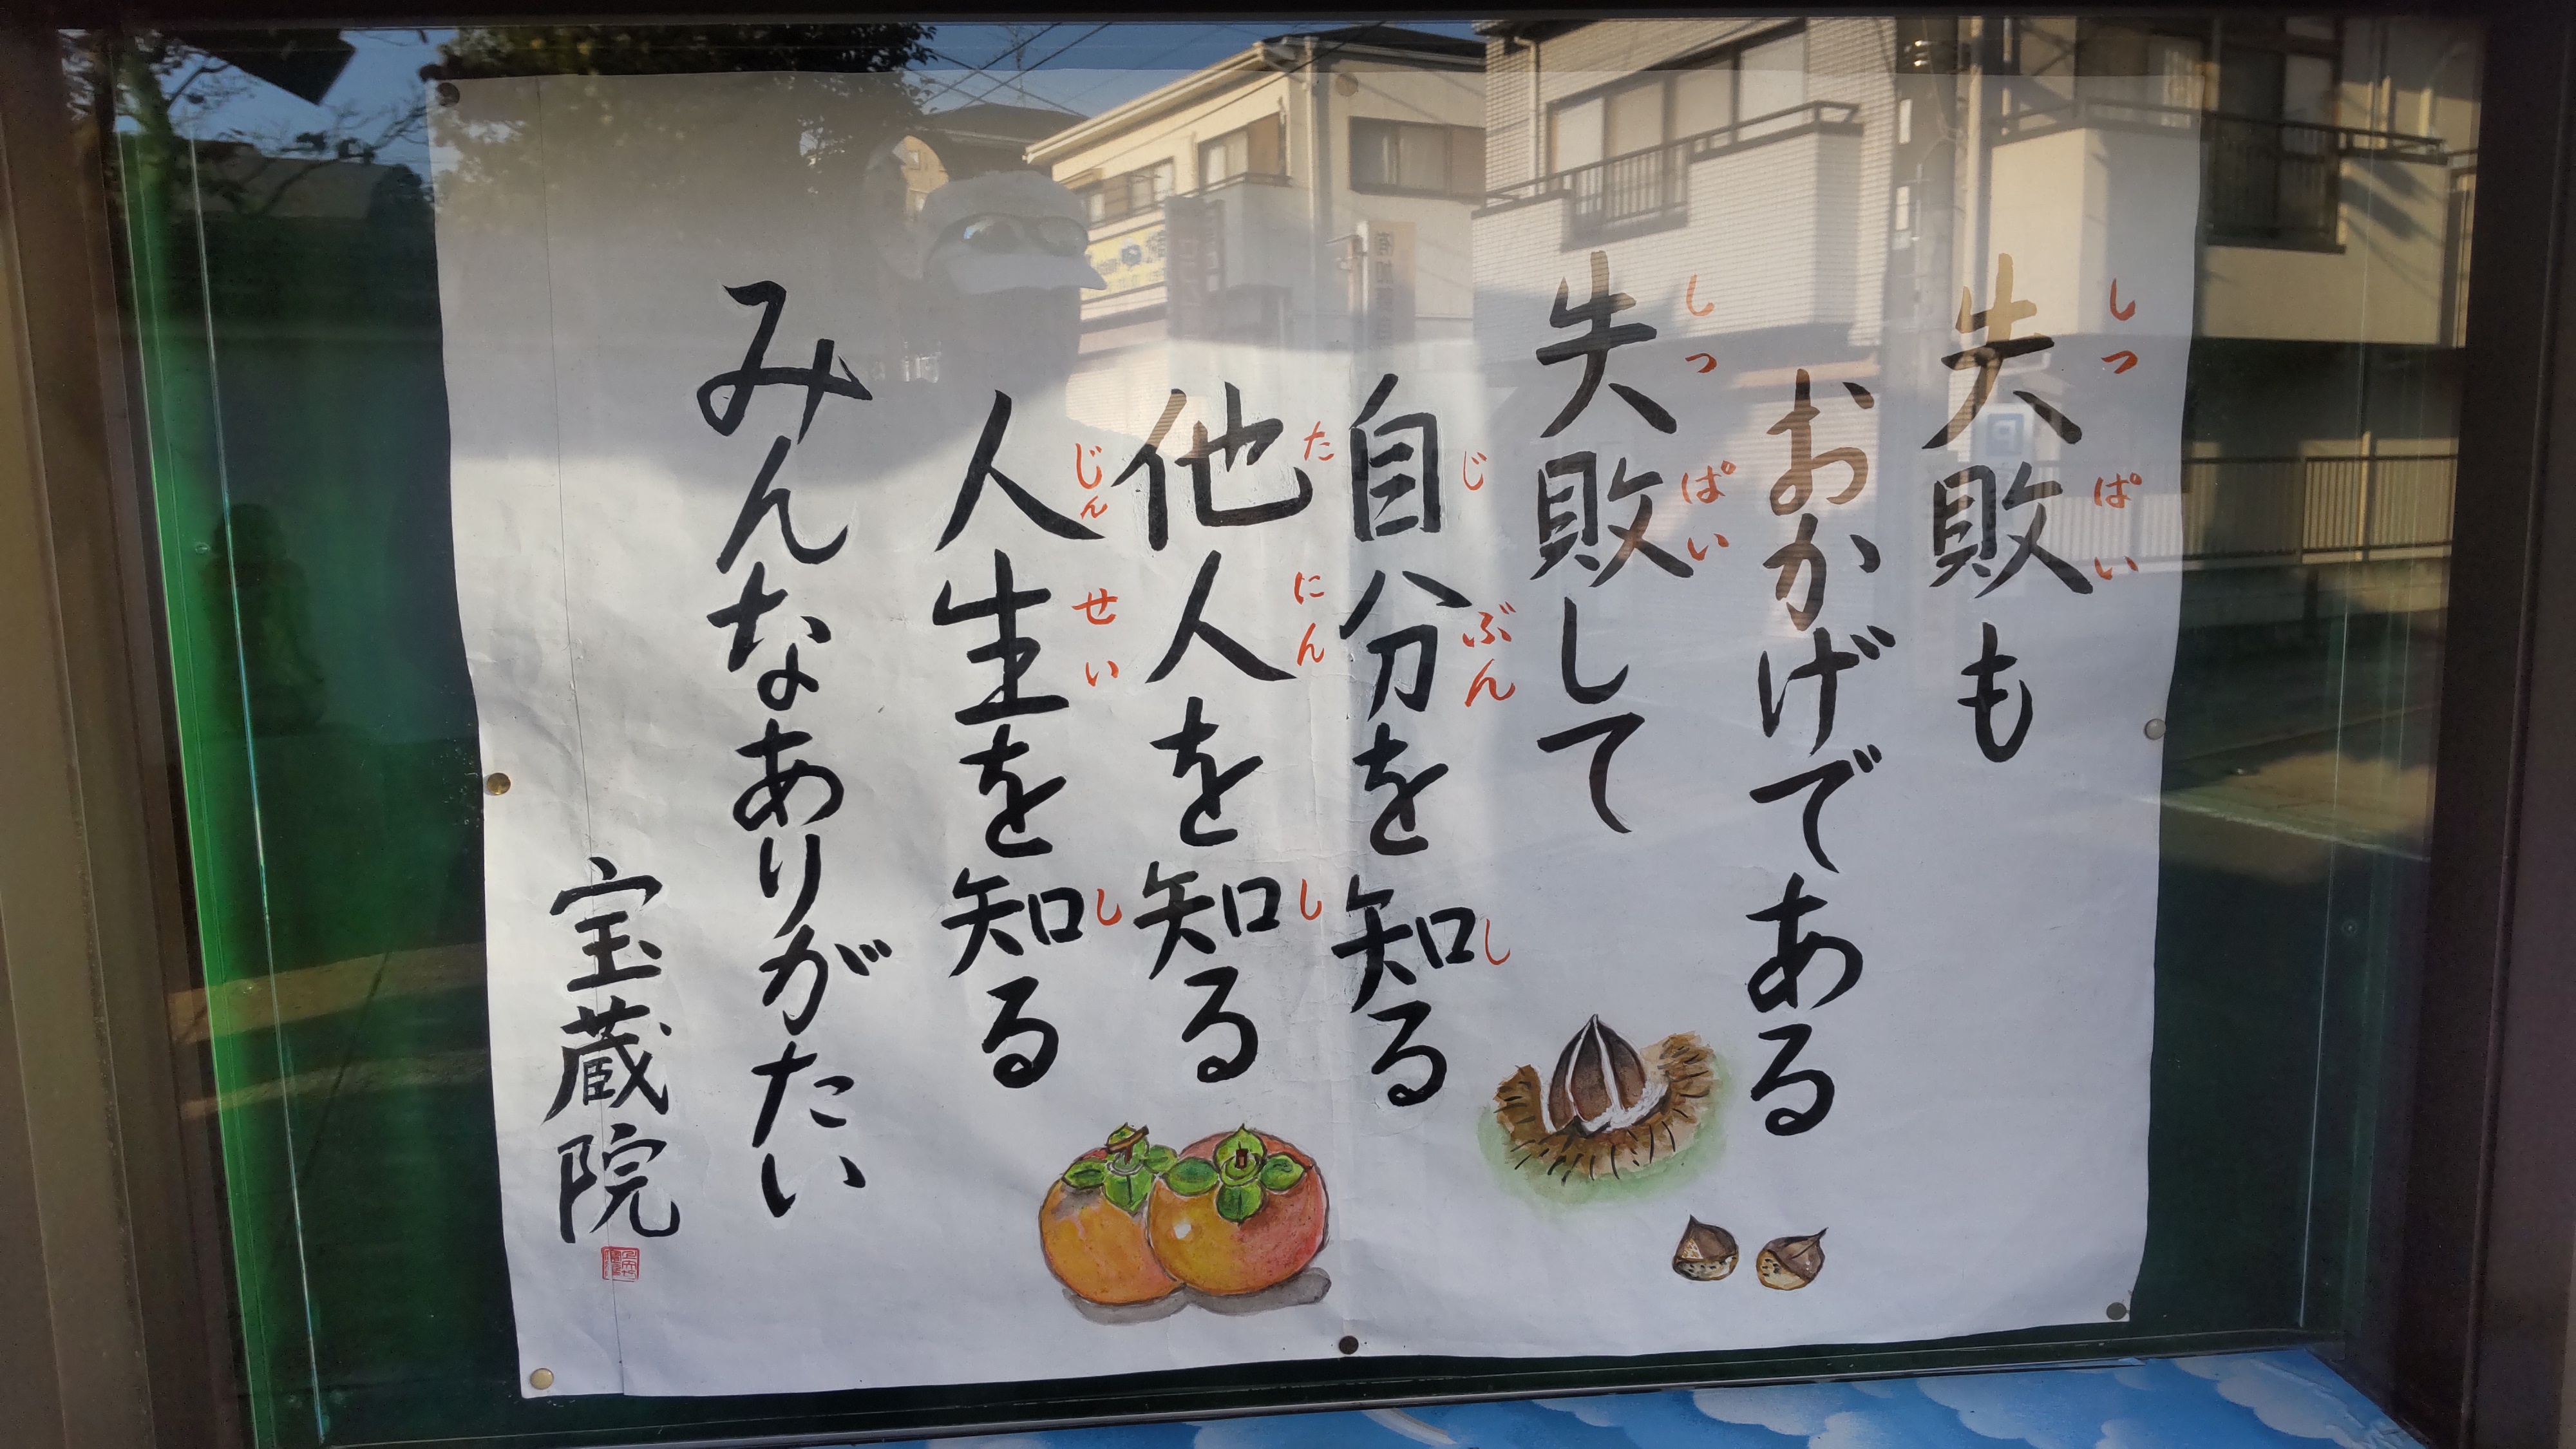 失敗も
しっぱい
おかげである
失敗して
しっぱい
自分を知る
じぶん し
他人を知る
たにん し
人生を知る
じんせい し
みんなありがたい
宝蔵院